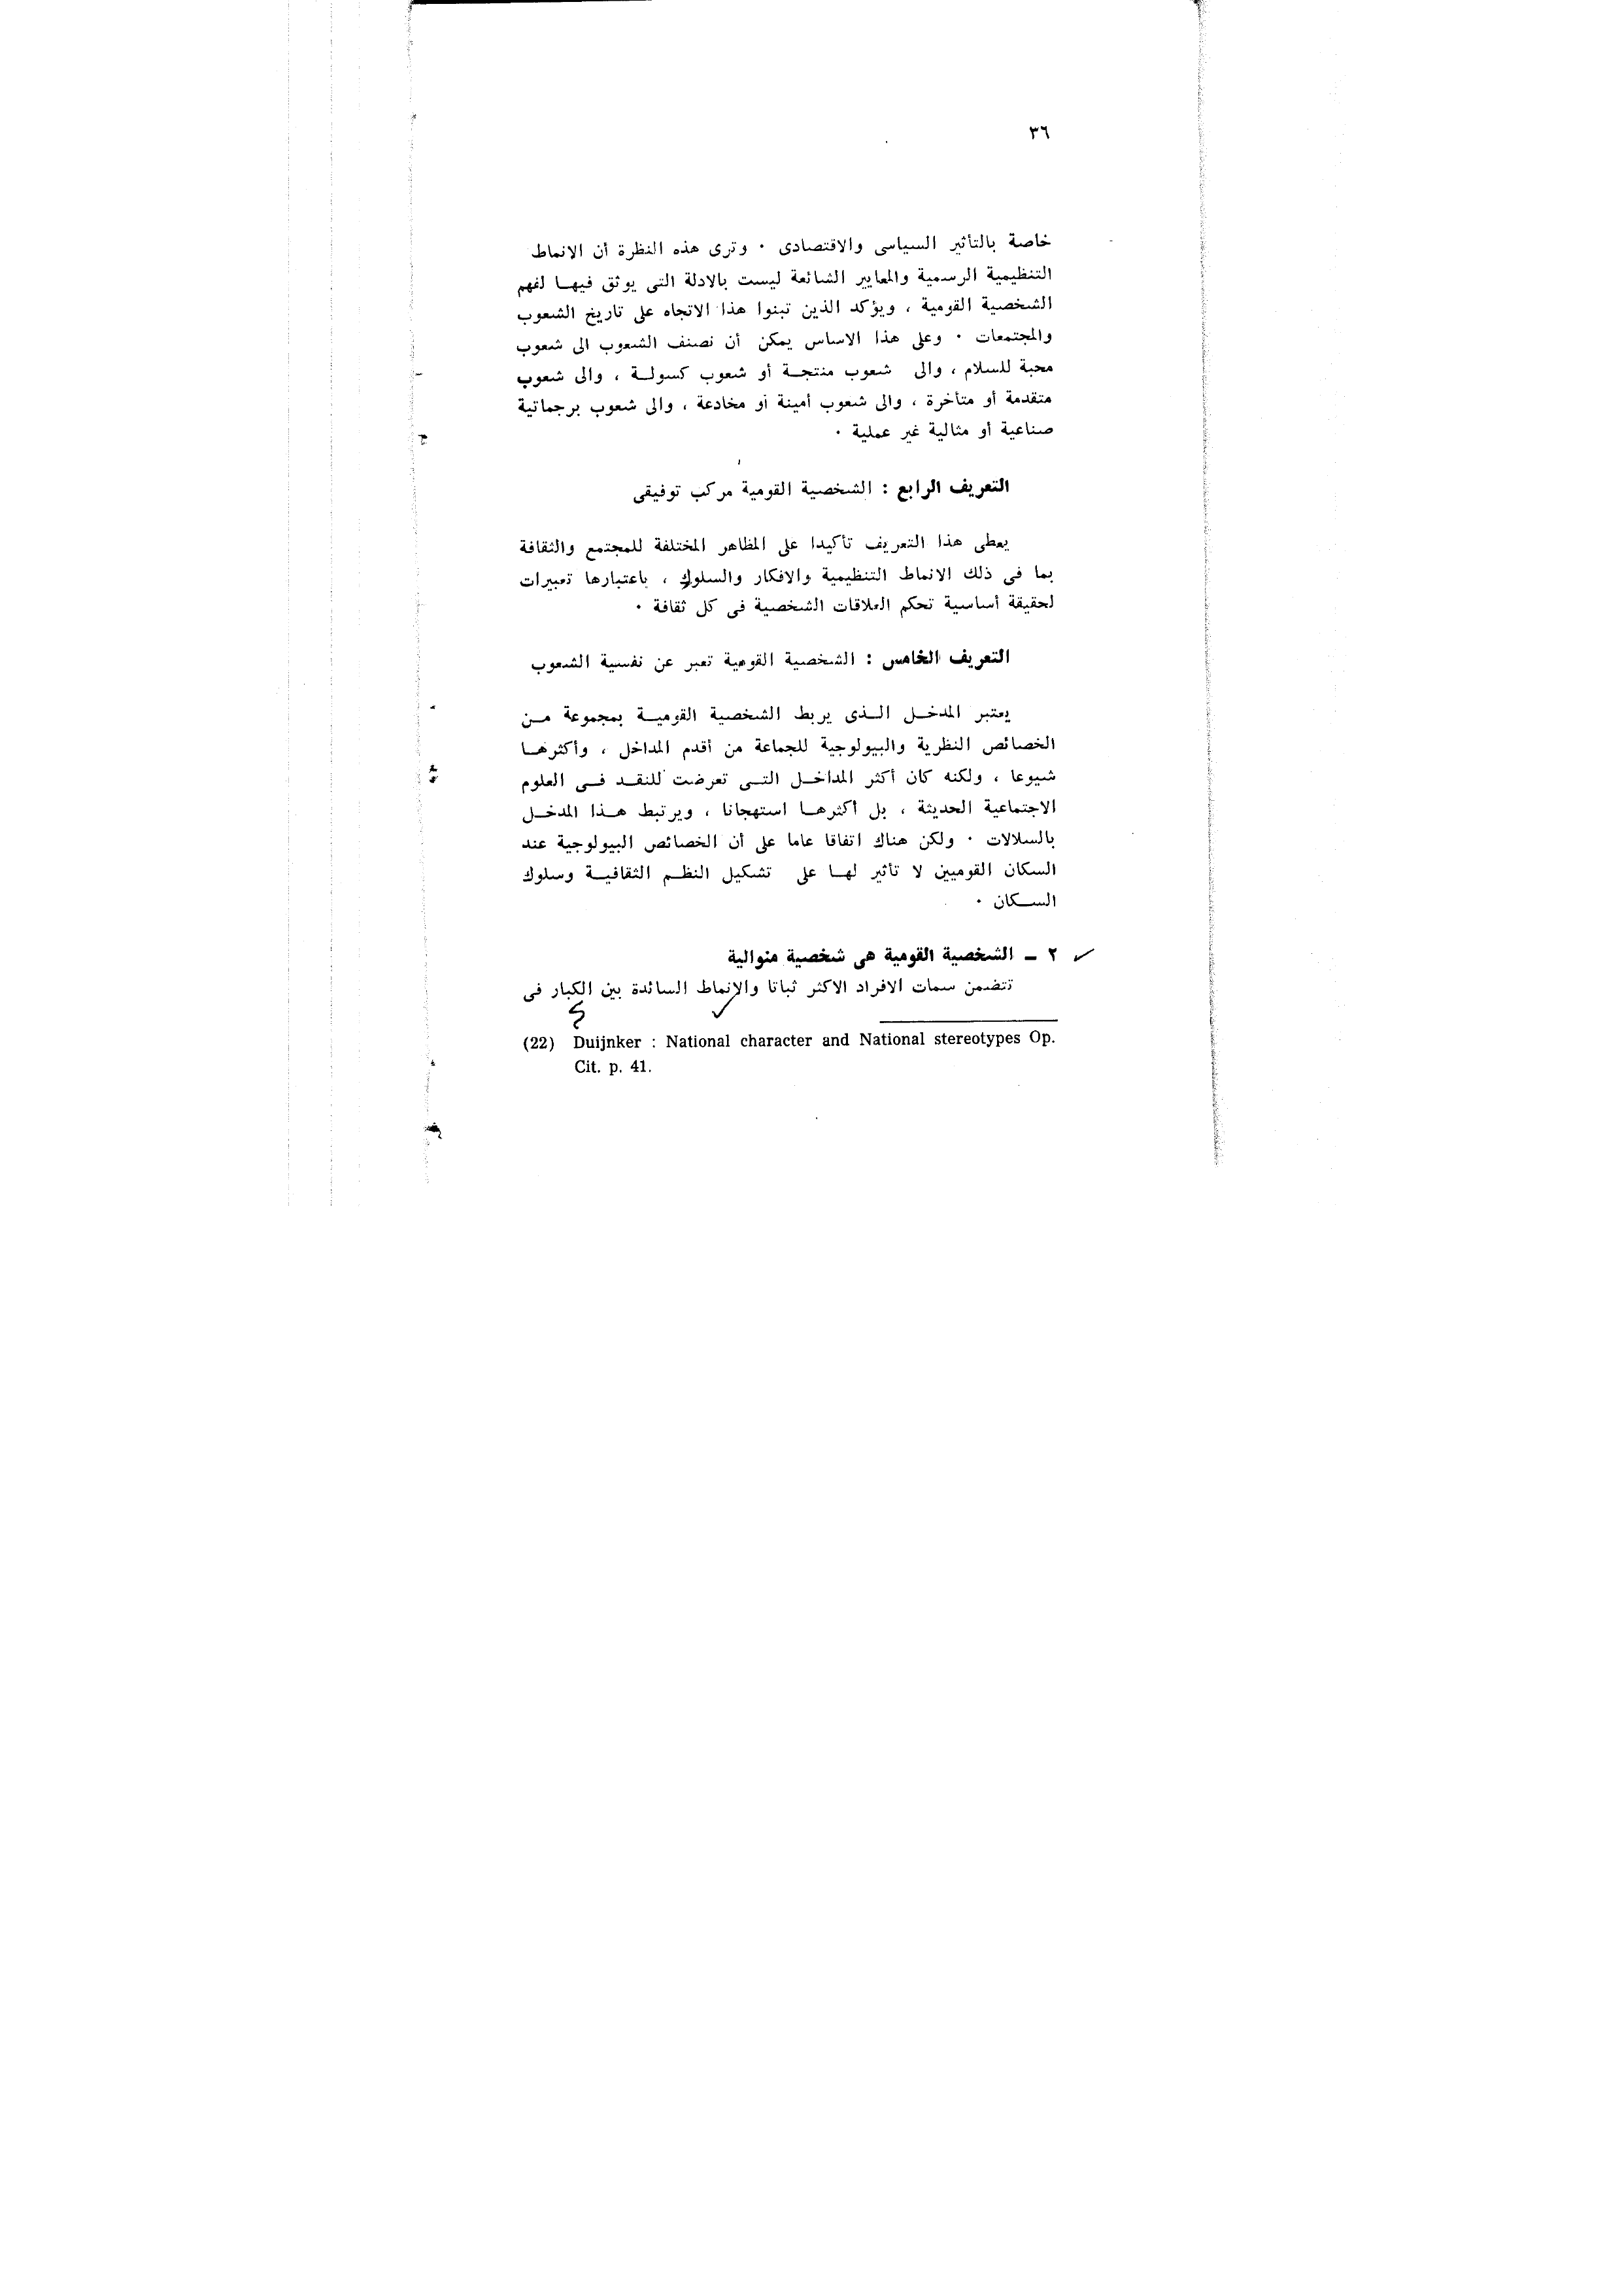 ٣٦
خاصة بالتأثير السياسى والاقتصادى ٠ وترى هذه النظرة أن الانماط
التنظيمية الرسمية والمعايير الشائعة ليست بالادلة التى يوثق فيهـا لفهم
الشخصية القومية ، ويؤكد الذين تبنوا هذا الاتجاه على تاريخ الشعوب
والمجتمعات ٠ وعلى هذا الاساس يمكن أن نصنف الشعوب الى شعوب
محبة للسلام ، والى شعوب منتجـة أو شعوب كسولـة ، والى شعوب
متقدمة أو متأخرة ، والى شعوب أمينة أو مخادعة ، والى شعوب برجماتية
صناعية أو مثالية غير عملية ٠
التعريف الرابع : الشخصية القومية مركب توفيقى
يعطى هذا التعريف تأكيدا على المظاهر المختلفة للمجتمع والثقافة
بما فى ذلك الانماط التنظيمية والافكار والسلوك ، باعتبارها تعبيرات
لحقيقة أساسية تحكم العلاقات الشخصية فى كل ثقافة ٠
التعريف الخامس : الشخصية القومية تعبر عن نفسية الشعوب
يعتبر المدخـل الـذى يربط الشخصية القوميـة بمجموعة مـن
الخصائص النظرية والبيولوجية للجماعة من أقدم المداخل ، وأكثرهـا
شيوعا ، ولكنه كان أكثر المداخـل التـى تعرضت للنقـد فـى العلوم
الاجتماعية الحديثة ، بل أكثرهـا استهجانا ، ويرتبط هـذا المدخـل
بالسلالات ٠ ولكن هناك اتفاقا عاما على أن الخصائص البيولوجية عند
السكان القوميين لا تأثير لهـا على تشكيل النظـم الثقافيـة وسلوك
السـكان ٠
٢ ـ الشخصية القومية هى شخصية منوالية
تتضمن سمات الافراد الاكثر ثباتا والانماط السائدة بين الكبار فى
(22) Duijnker : National character and National stereotypes Op.
Cit. p. 41.